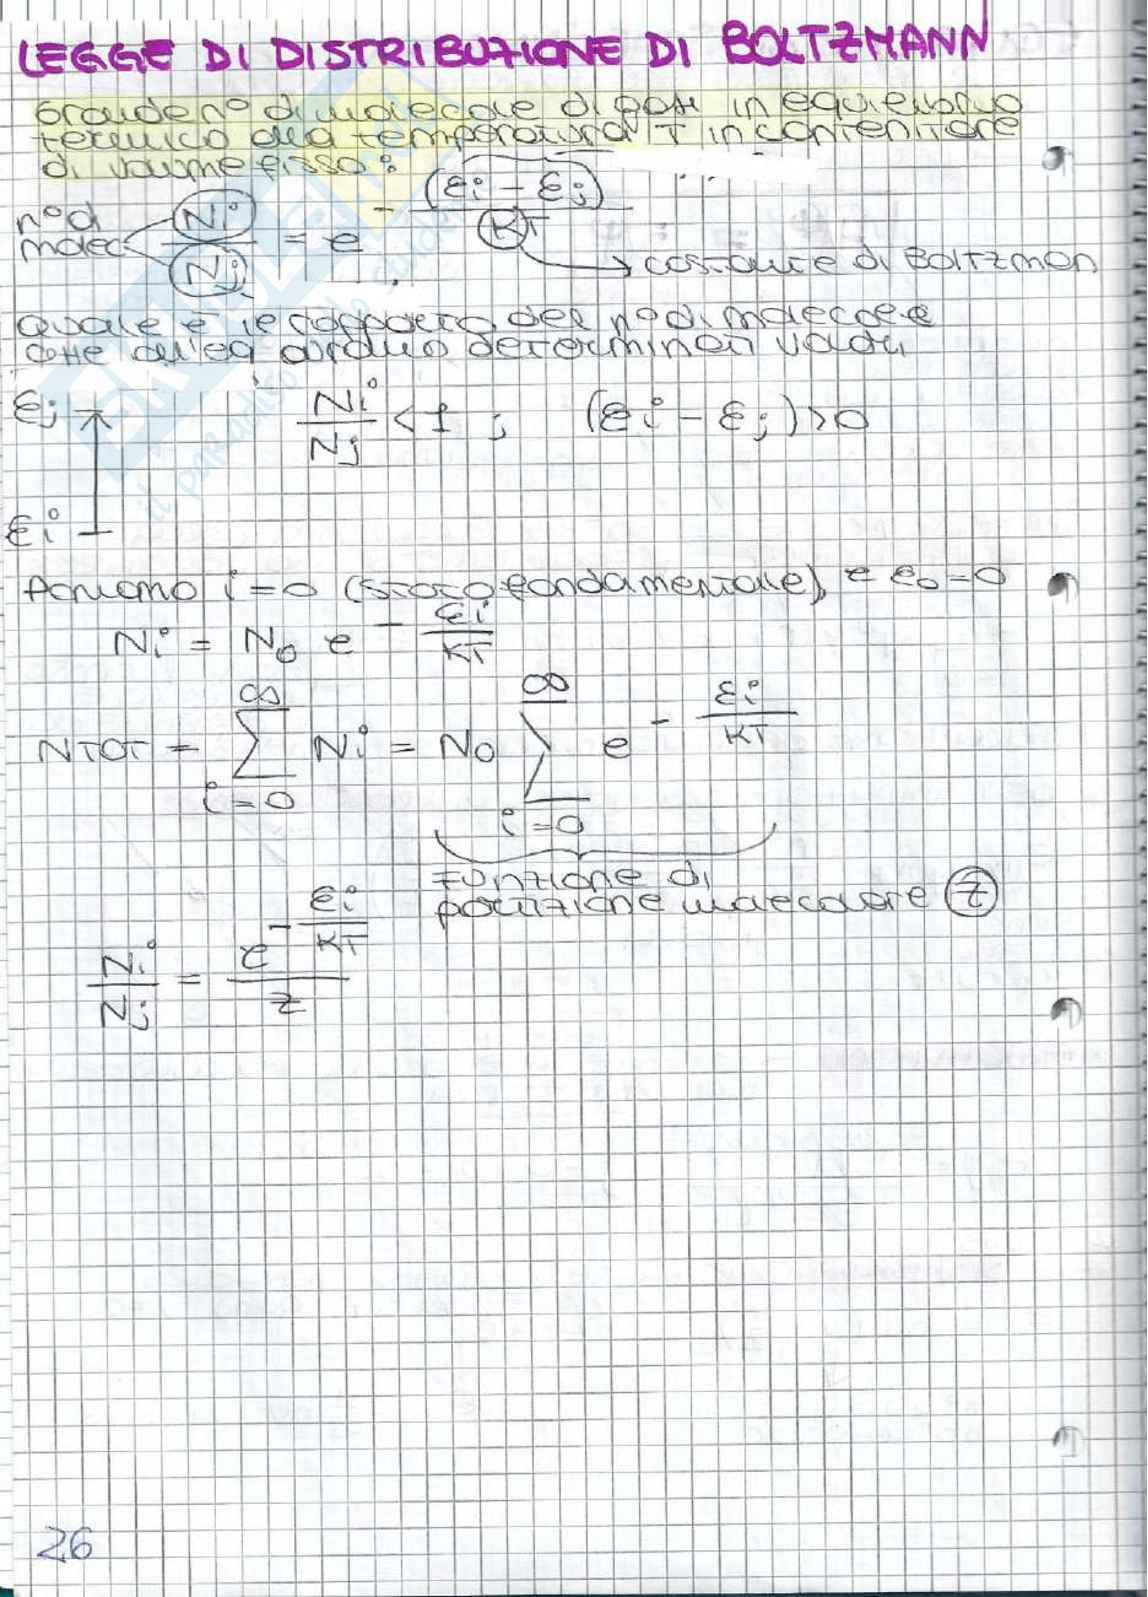 LEGGE DI DISTRIBUZIONE DI BOLTZMANN
Grande n° di molecole di gas in equilibrio
termico alla temperatura T in contenitore
di volume fisso:
n° di molec Ni/Nj = e^-(εi - εj)/KT
costante di Boltzman
Quale è il rapporto del n° di molecole
che all'eq avranno determinati valori
εj
Ni/Nj < 1 ; (εi - εj) > 0
εi
Poniamo i=0 (stato fondamentale) e e0=0
Ni = N0 e^-εi/KT
NTOT = ∑ i=0 ∞ Ni = N0 ∑ i=0 ∞ e^-εi/KT
Funzione di
partizione molecolare z
Ni/Nj = e^-εi/KT / z
26